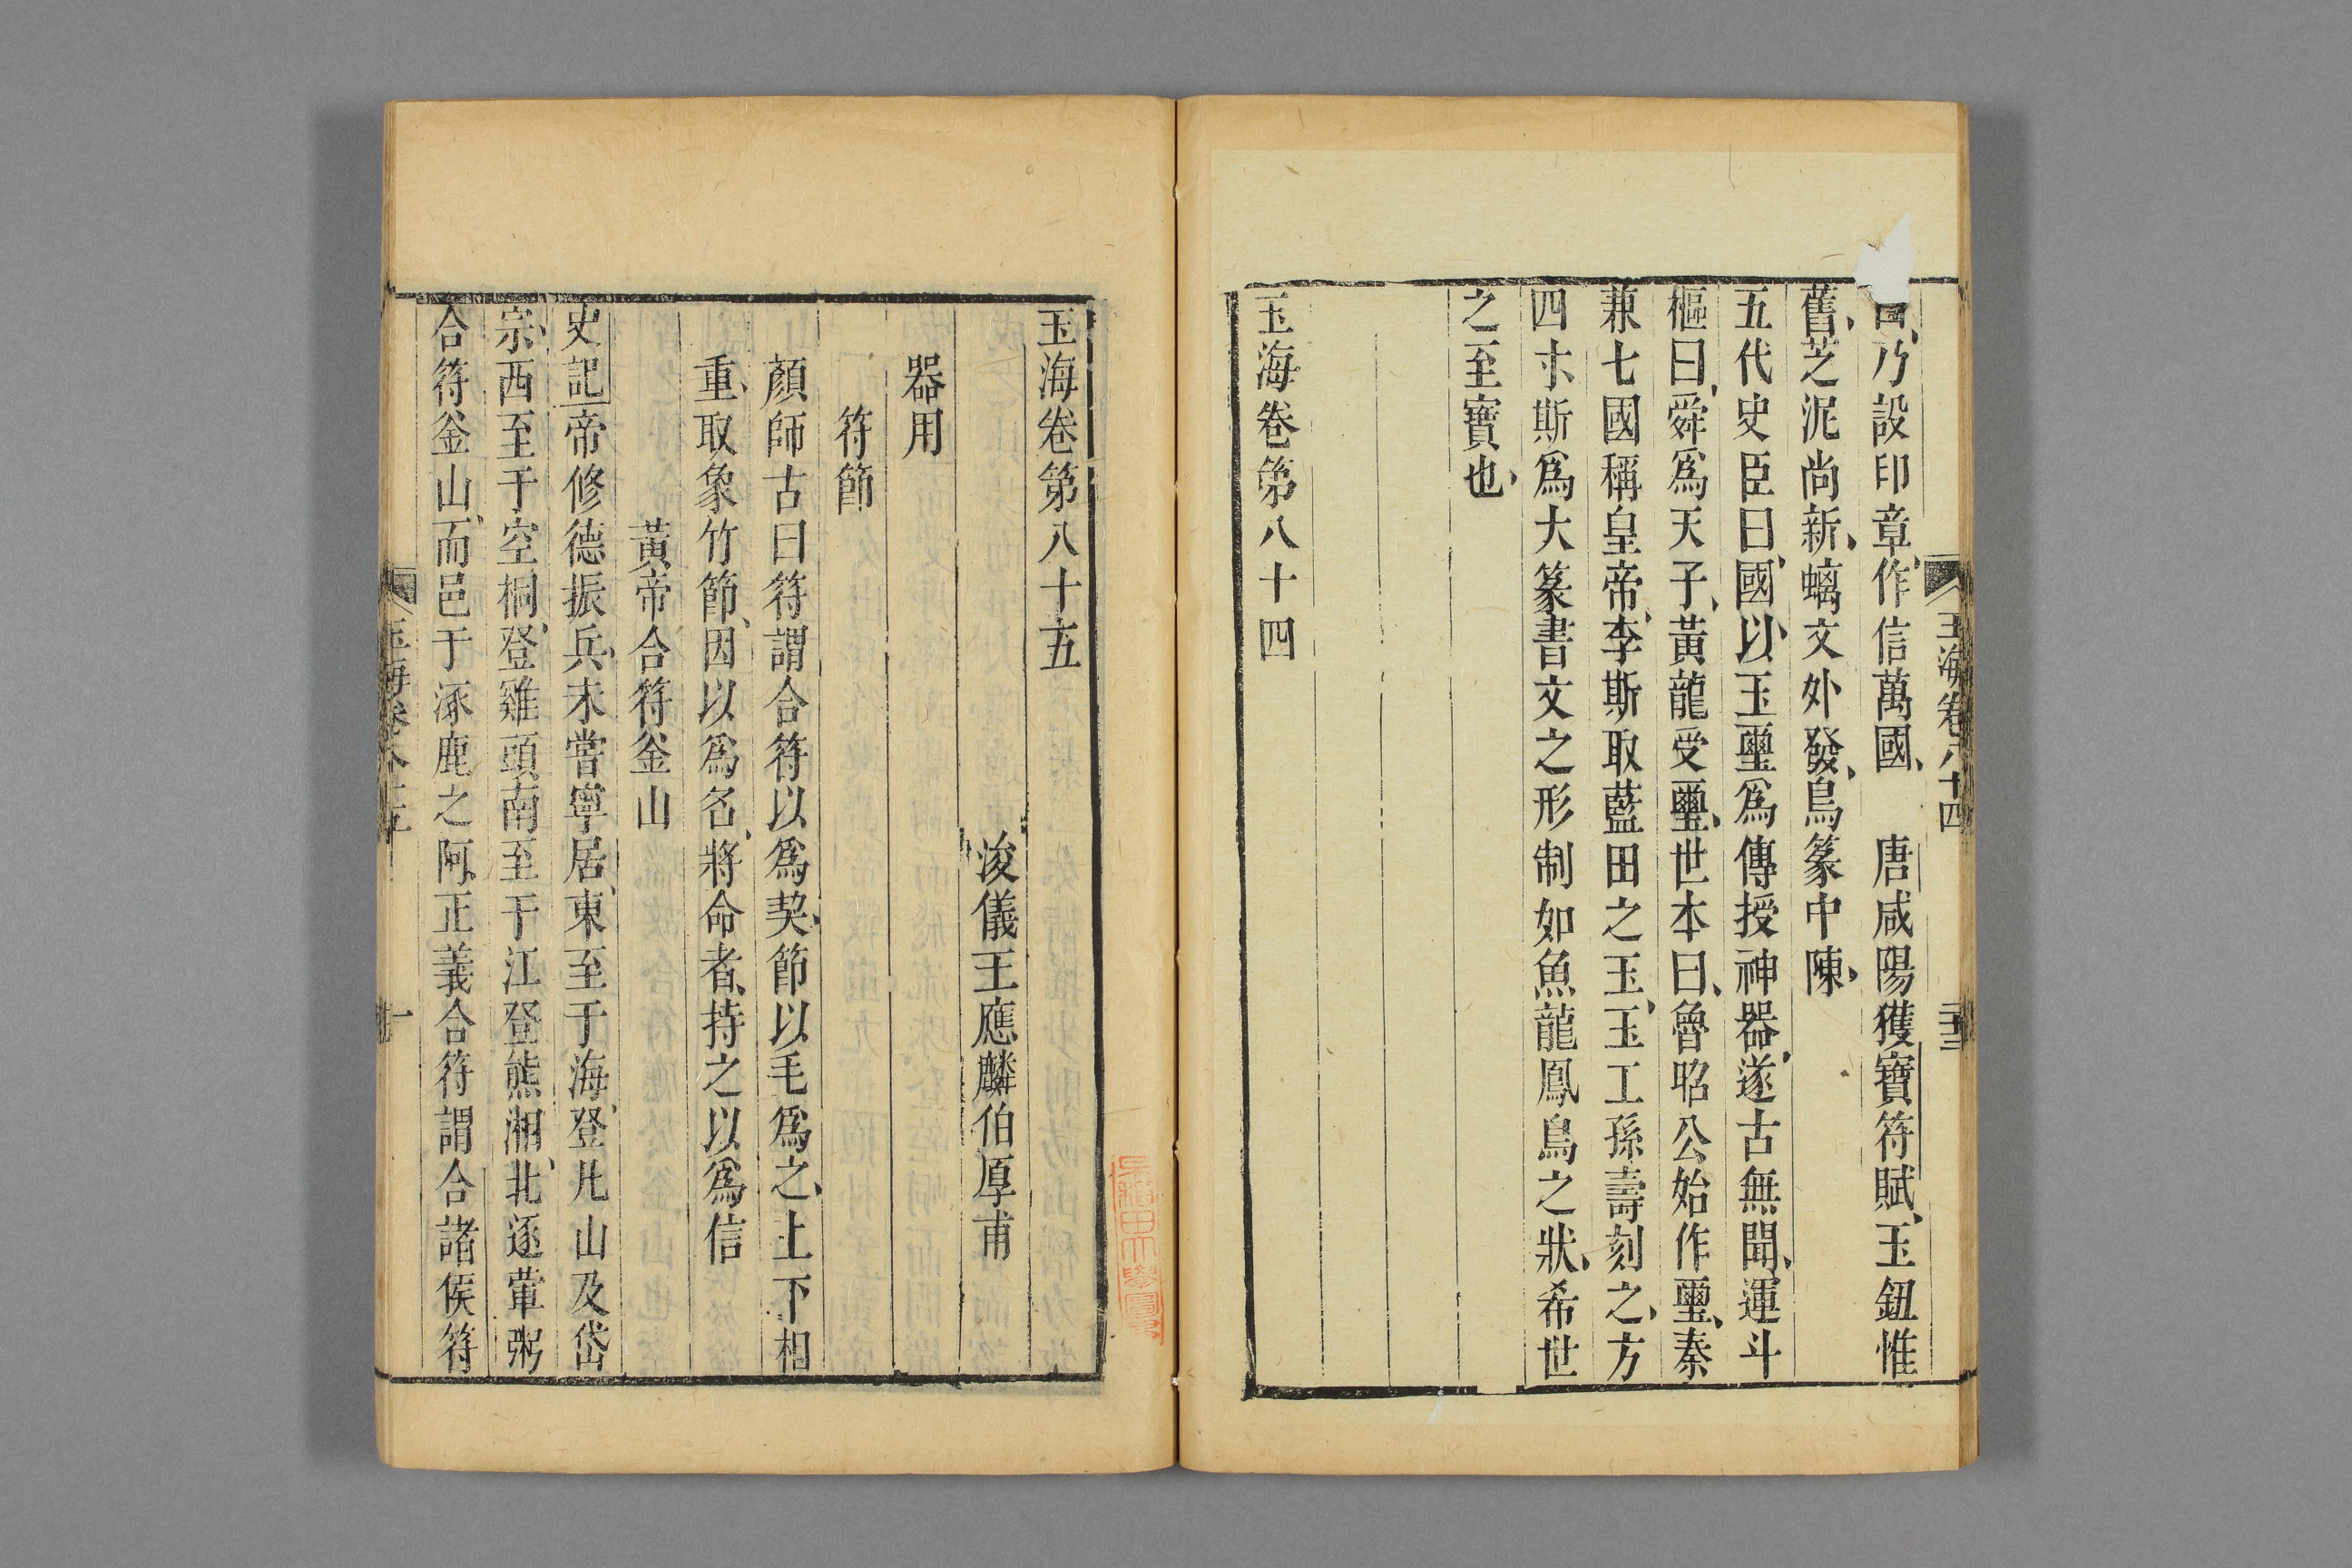 乃設印章作信萬國　唐咸陽獲寶符賦玉鈕惟
舊芝泥尚新螭文外發鳥篆中陳
五代史臣曰國以玉璽爲傳授神器遂古無聞運斗
樞曰舜爲天子黃龍受璽世本曰魯昭公始作璽秦
兼七國稱皇帝李斯取藍田之玉玉工孫壽刻之方
四寸斯爲大篆書文之形制如魚龍鳳鳥之狀希世
之至寶也
玉海卷第八十四
玉海卷八十四
玉海卷第八十五
浚儀王應麟伯厚甫
器用
符節
顏師古曰符謂合符以爲契節以毛爲之上下相
重取象竹節因以爲名將命者持之以爲信
黃帝合符釜山
史記帝修德振兵未嘗寧居東至于海登凡山及岱
宗西至于空桐登雞頭南至于江登熊湘北逐葷粥
合符釜山而邑于涿鹿之阿正義合符謂合諸侯符
玉海卷八十五
一